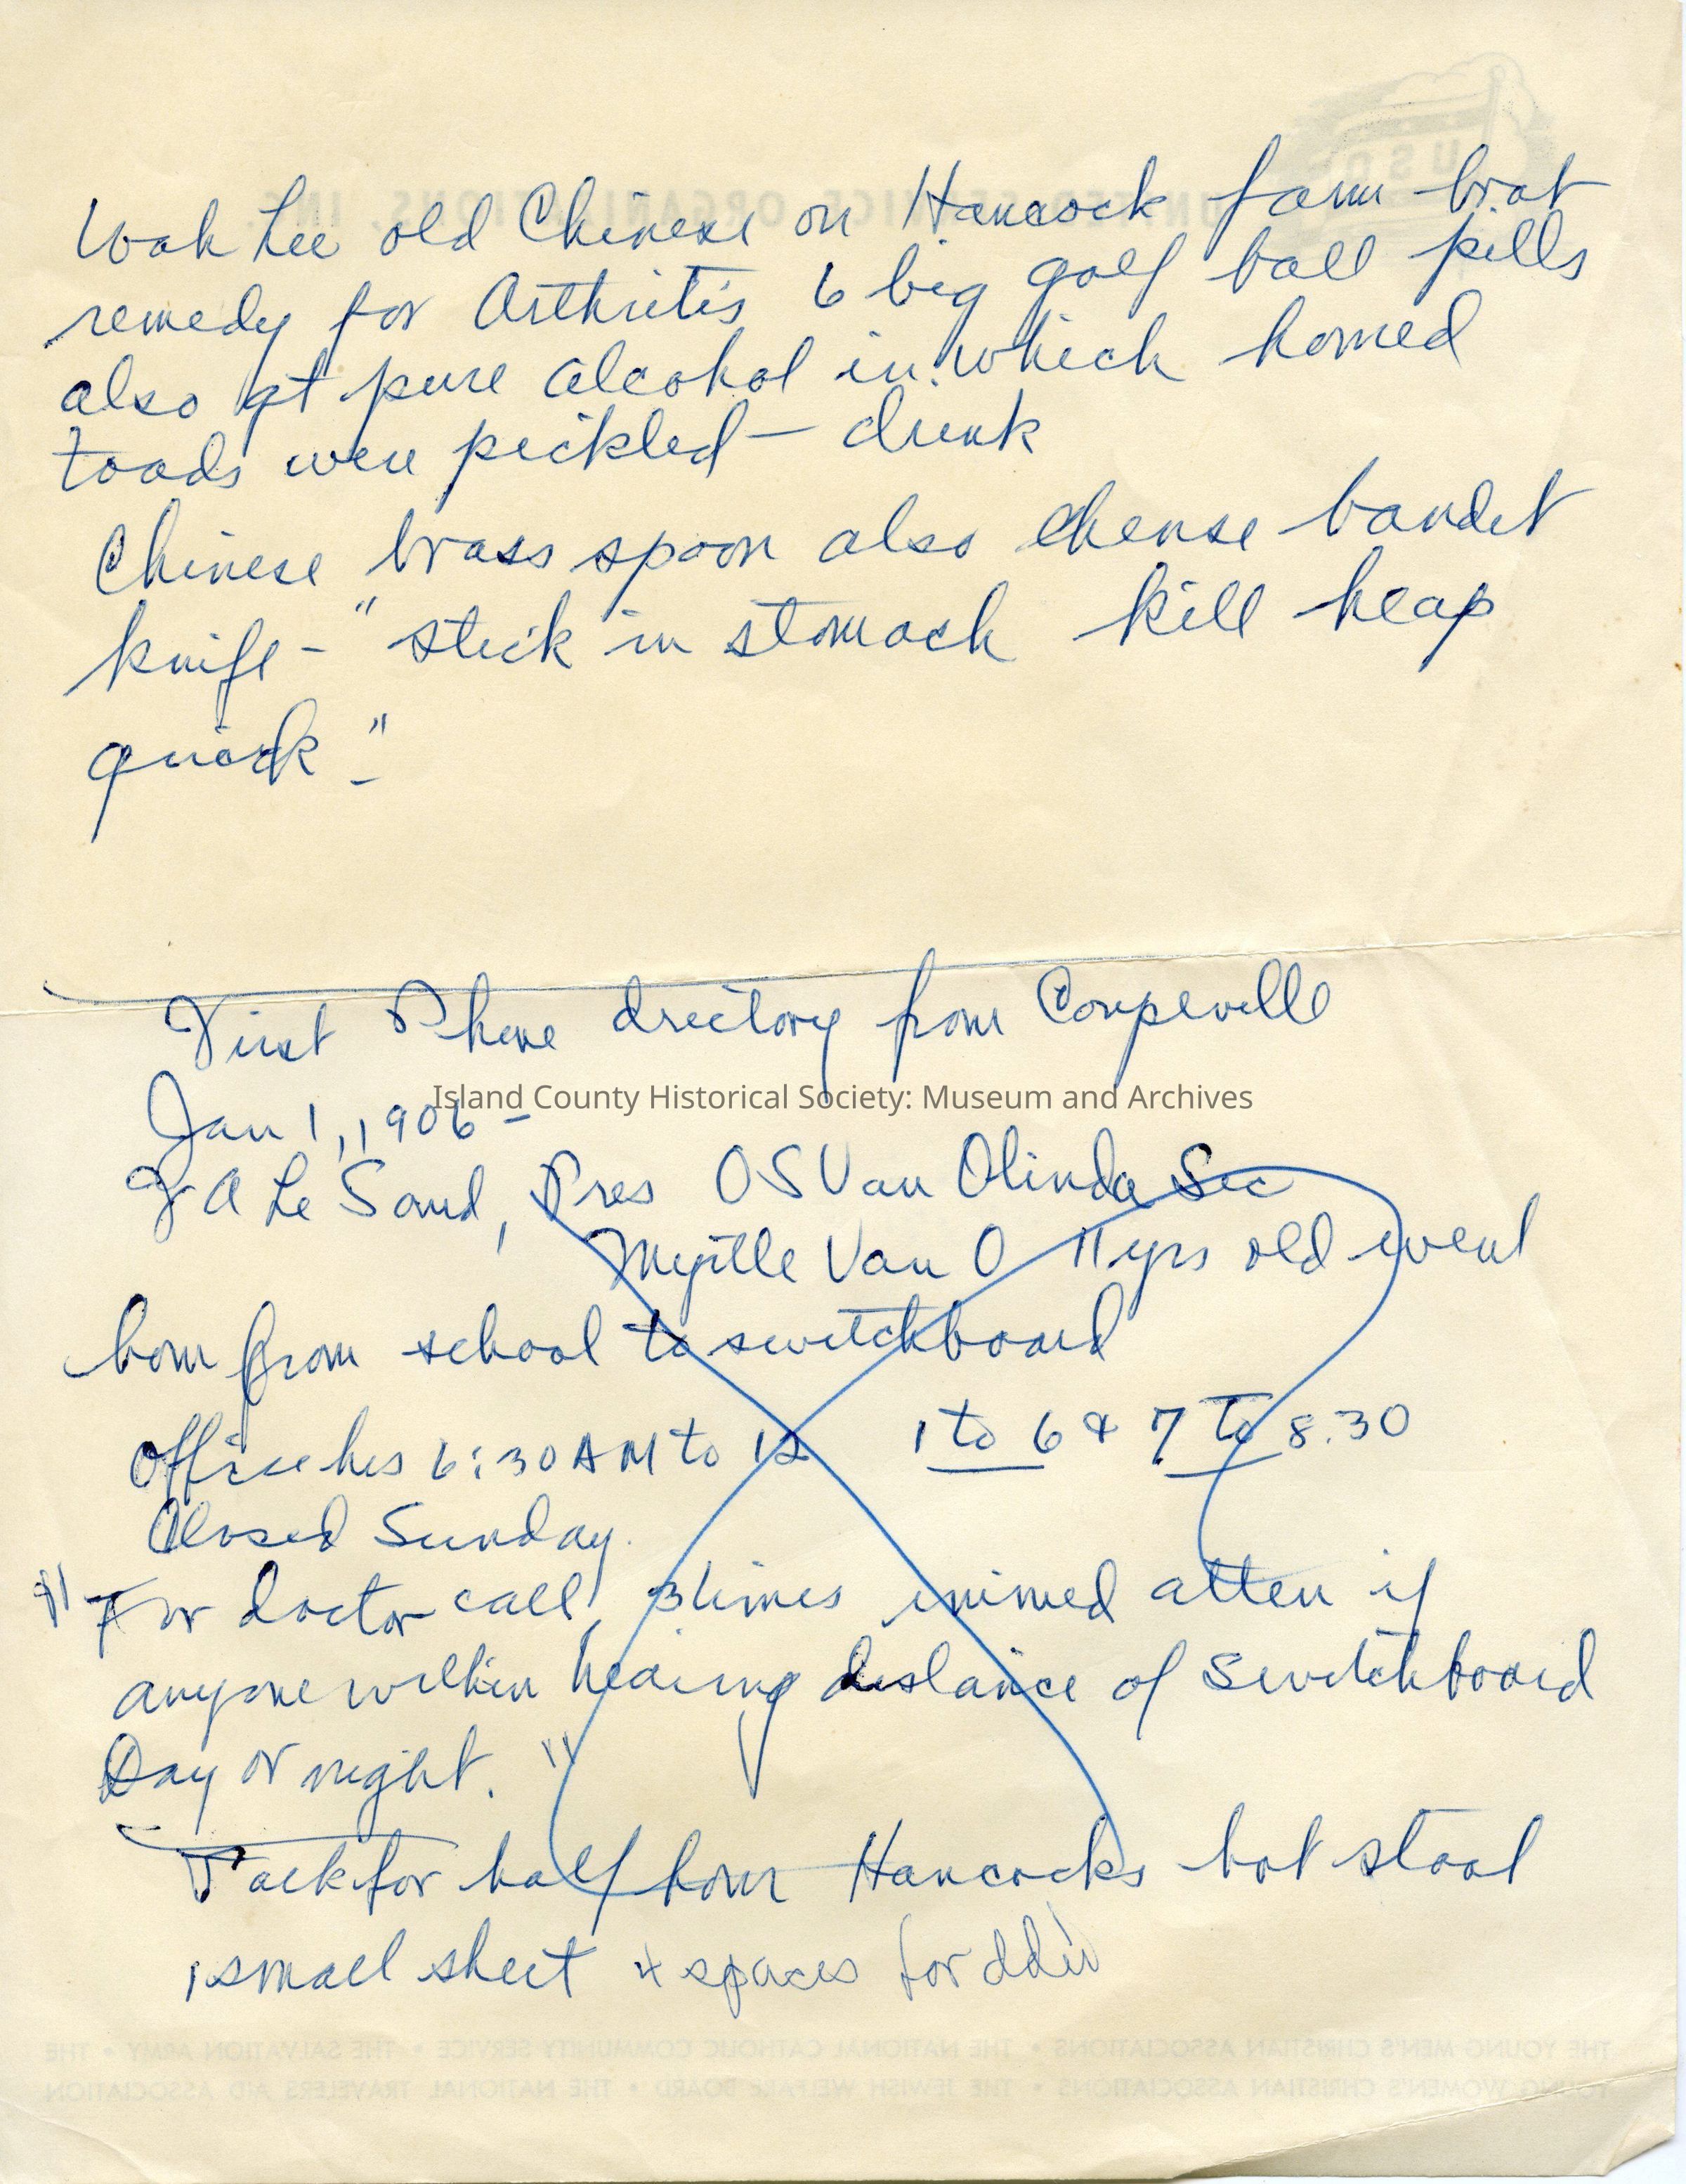 Wah Lee old Chinese on Hancock farm brot
remedy for Arthritis 6 big golf ball pills
also qt pure alcohol in which horned
toads were pickled — drink
Chinese brass spoon also chense bandit
knife - "stick in stomach kill heap
quick"-
First Phone drectory from Coupeville
Island County Historical Society: Museum and Archives
Jan 1, 1906 -
A Le Sourd, Pres O S Van Olinda Sec
Myrtle Van O 11 yrs old went
hom from school to switchboard
Office hrs 6:30 AM to 12 1 to 6 & 7 to 8.30
Closed Sunday.
"For doctor call, 3 times immed atten if
anyone within hearing distance of Switchboard
Day or night."
Talk for half hour Hancocks hot stool
1 small sheet 4 spaces for
UNITED SERVICE ORGANIZATIONS, INC.
USO
THE YOUNG MEN'S CHRISTIAN ASSOCIATIONS • THE NATIONAL CATHOLIC COMMUNITY SERVICE • THE SALVATION ARMY • THE
YOUNG WOMEN'S CHRISTIAN ASSOCIATIONS • THE JEWISH WELFARE BOARD • THE NATIONAL TRAVELERS AID ASSOCIATION